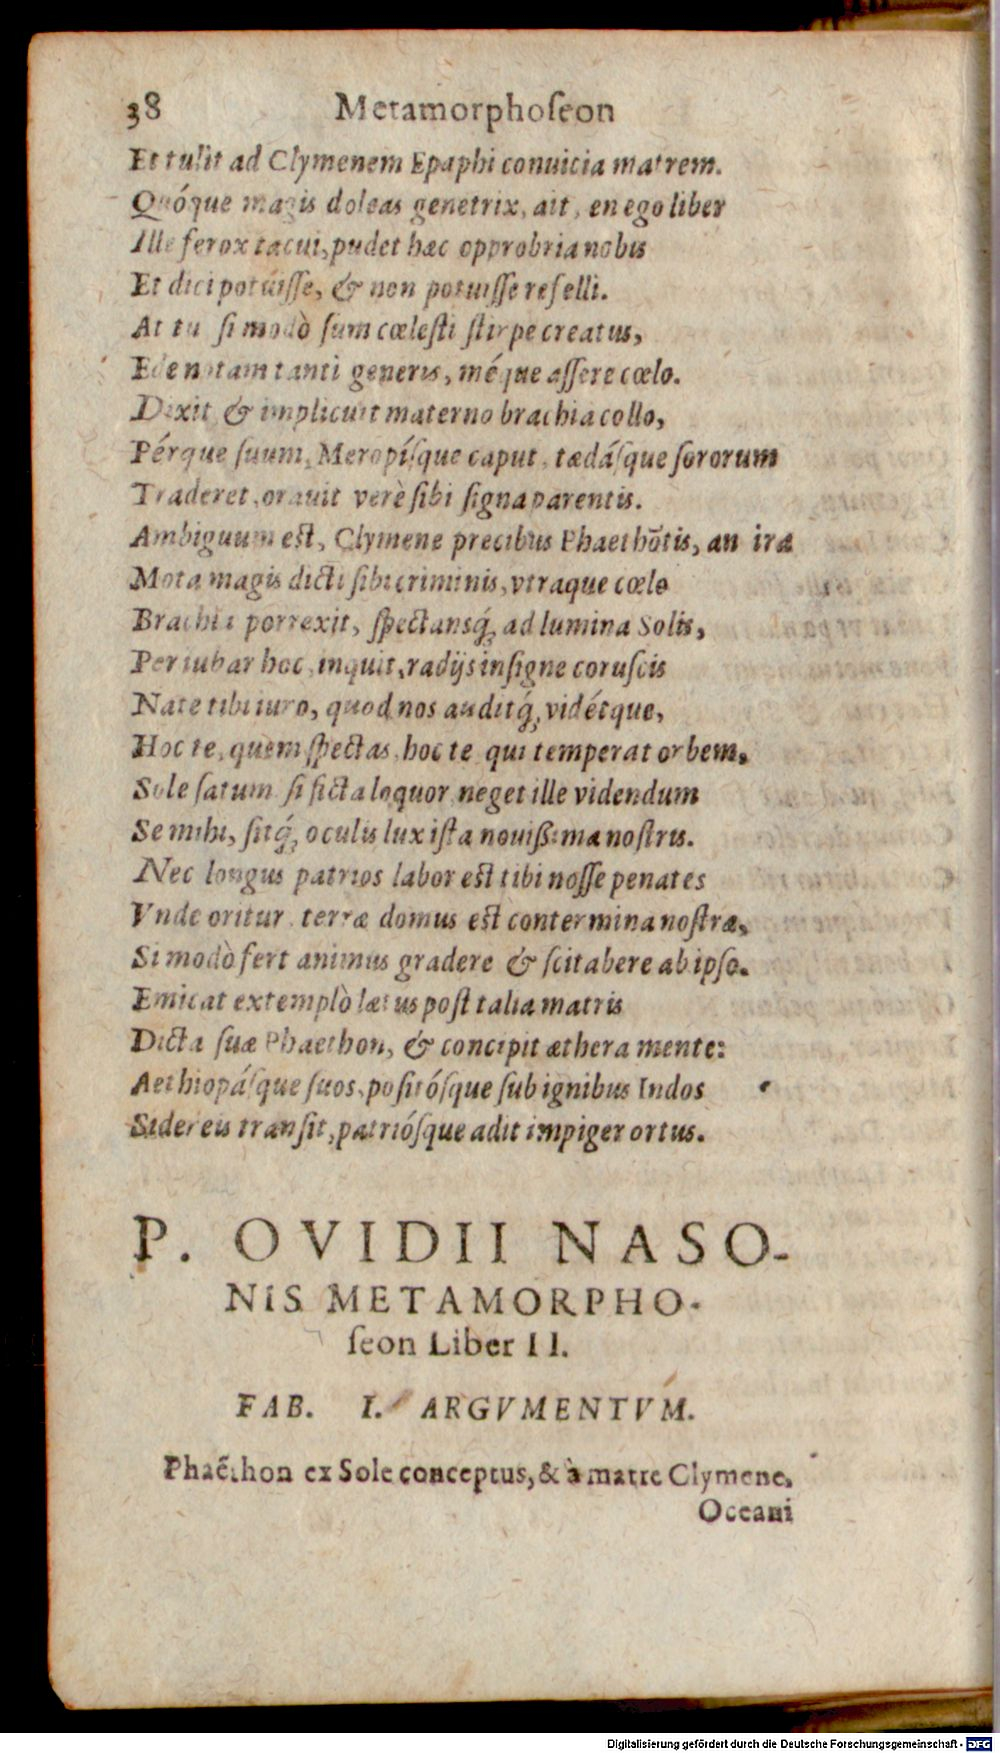 38 Metamorphoſeon
Et tulit ad Clymenem Epaphi conuicia matrem.
Quóque magis doleas genetrix, ait, en ego liber
Ille ferox tacui, pudet hæc opprobria nobis
Et dici potuiſſe, & non potuiſſe refelli.
At tu ſi modò ſum cœleſti ſtirpe creatus,
Ede notam tanti generis, méque aſſere cœlo.
Dixit & implicuit materno brachia collo,
Pérque ſuum, Meropíſque caput, tædáſque ſororum
Traderet, orauit verè ſibi ſigna parentis.
Ambiguum eſt, Clymene precibus Phaethōtis, an iræ
Mota magis dicti ſibi criminis, vtraque cœlo
Brachia porrexit, ſpectansq́, ad lumina Solis,
Per iubar hoc, inquit, radijs inſigne coruſcis
Nate tibi iuro, quod nos auditq́, vidétque,
Hoc te, quem ſpectas, hoc te qui temperat orbem,
Sole ſatum ſi ficta loquor neget ille videndum
Se mihi, ſitq́, oculis lux iſta nouißima noſtris.
Nec longus patrios labor eſt tibi noſſe penates
Vnde oritur, terræ domus eſt contermina noſtræ,
Si modò fert animus gradere & ſcitabere ab ipſo.
Emicat extemplò lætus poſt talia matris
Dicta ſuæ Phaethon, & concipit æthera mente:
Aethiopáſque ſuos, poſitóſque ſub ignibus Indos
Sidereis tranſit, patrióſque adit impiger ortus.
P. OVIDII NASO-
NIS METAMORPHO-
ſeon Liber II.
FAB. I. ARGVMENTVM.
Phaëthon ex Sole conceptus, & à matre Clymene,
Oceani
Digitalisierung gefördert durch die Deutsche Forschungsgemeinschaft - DFG